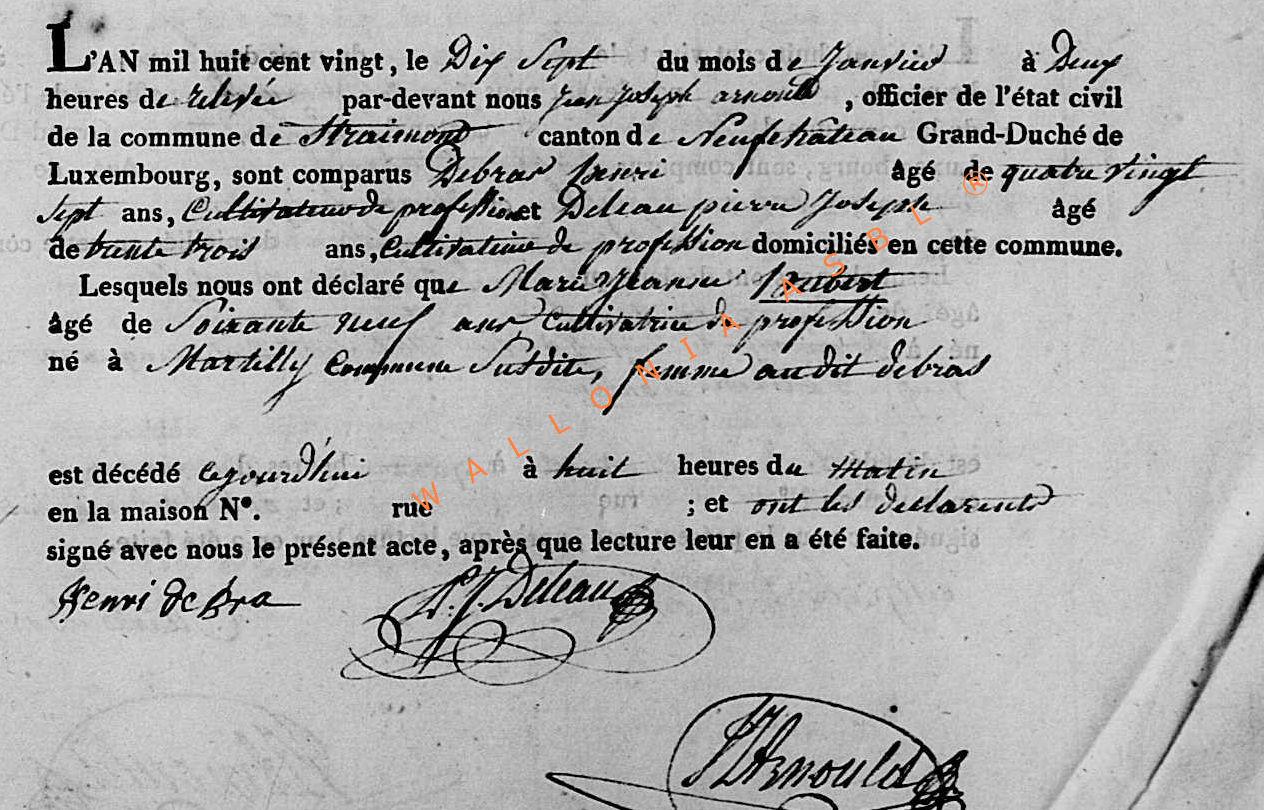 L'AN mil huit cent vingt, le Dix Sept du mois de Janvier à Deux
heures de relevée par-devant nous jean joseph arnould, officier de l'état civil
de la commune de Straimont canton de Neufchâteau Grand-Duché de
Luxembourg, sont comparus Debras henri âgé de quatre vingt
sept ans, Cultivateur de profession et Deleau pierre Joseph âgé
de trente trois ans, Cultivateur de profession domiciliés en cette commune.
Lesquels nous ont déclaré que Marie Jeanne houbert
âgé de Soixante neuf ans Cultivatrice de profession
né à Martilly Commune Susdite, femme audit debras
est décédé cejourd'hui à huit heures du matin
en la maison N°. rue ; et ont les declarents
signé avec nous le présent acte, après que lecture leur en a été faite.
Henri de Bra P. J. Deleau
JJArnould
WALLONIA ASBL ®